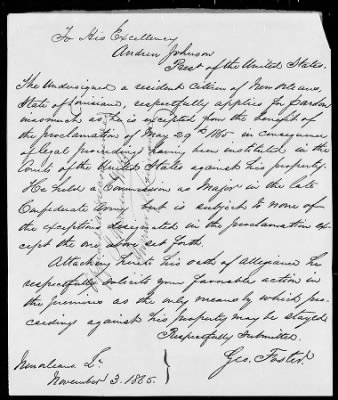 To His Excellency
Andrew Johnson
Prest of the United States.
The Undersigned a resident Citizen of New Orleans,
State of Louisiana, respectfully applies for Pardon
inasmuch as he is excepted from the benefit of
the proclamation of May 29th 1865 in consequence
of legal proceedings having been instituted in the
Courts of the United States against his property.
He held a Commission as Major in the late
Confederate Army but is subject to none of
the exceptions designated in the proclamation ex-
cept the one above set forth.
Attaching hereto his oath of allegiance he
respectfully solicits your favorable action in
the premises as the only means by which pro-
ceeding against his property may be stayed.
Respectfully Submitted.
Geo. Foster.
New Orleans La.
November 3. 1865.